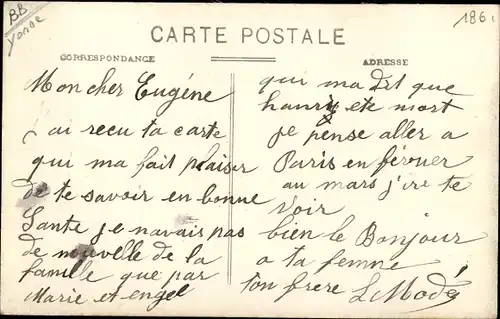 BB
Yonne
186
CARTE POSTALE
CORRESPONDANCE
ADRESSE
Mon cher Eugéne
j'ai recu ta carte
qui ma fait plaiser
de te savoir en bonne
Sante je navais pas
de nouvelle de la
famille que par
Marie et engel
qui ma Dit que
hanriy ete mort
je pense aller a
Paris en férvuer
au mars j'ire te
voir
bien le Bonjour
a ta femme
ton frere L Modé